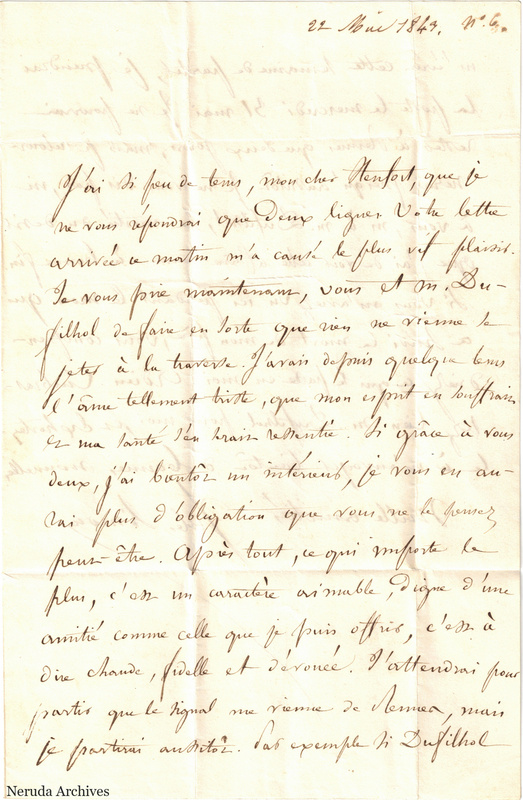 22 Mai 1843. N.º 6.
J'ai si peu de tems, mon cher Henfort, que je
ne vous repondrai que deux lignes. Votre lettre
arrivée ce matin m'a causé le plus vif plaisir.
Je vous prie maintenant, vous et m. Du-
filhol de faire en sorte que rien ne vienne se
jeter à la traverse. J'avais depuis quelque tems
l'âme tellement triste, que mon esprit en souffrait
et ma santé s'en serait ressentie. Si grâce à vous
deux, j'ai bientôt un intérieur, je vous en au-
rai plus d'obligation que vous ne le pensez
peut-être. Après tout, ce qui importe le
plus, c'est un caractère aimable, digne d'une
amitié comme celle que je puis offrir, c'est à
dire chaude, fidelle et dévouée. J'attendrai pour
partir que le signal me vienne de Rennes, mais
je partirai aussitôt. Par exemple si Dufilhol
Neruda Archives